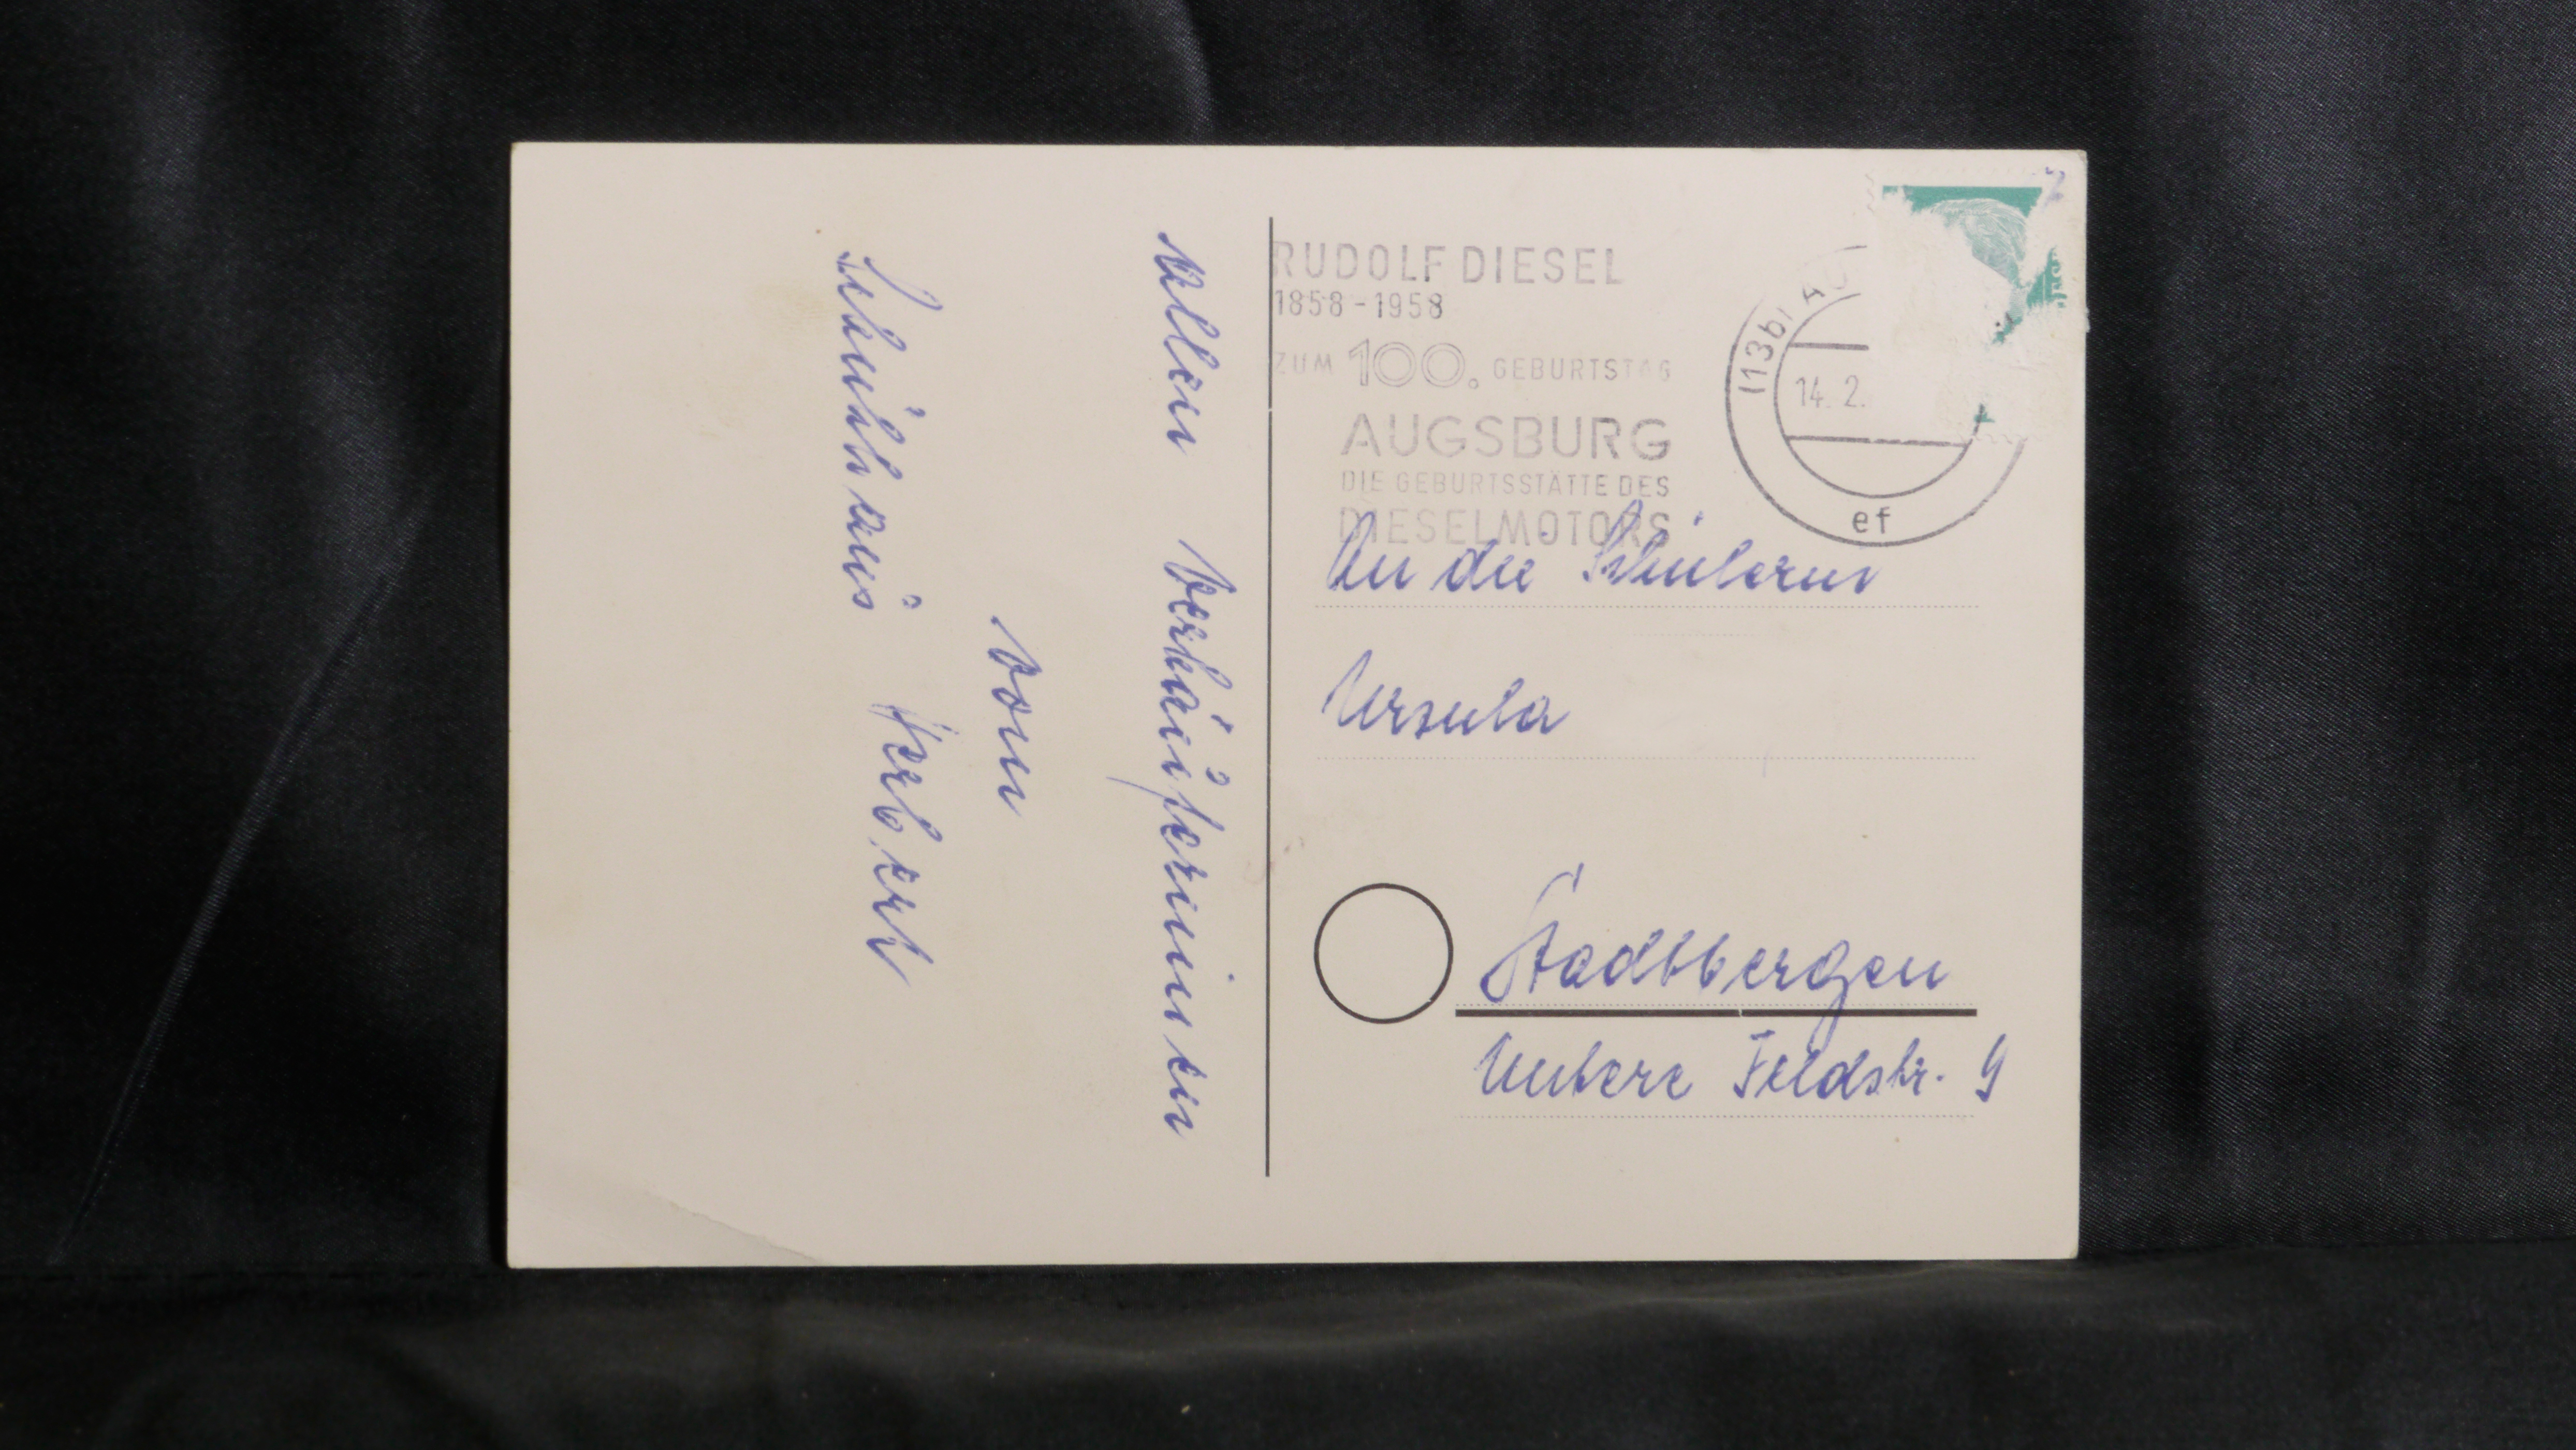 Allen Verkäuferinnen
vom
Schuhhaus Herbert
RUDOLF DIESEL
1858-1958
ZUM 100. GEBURTSTAG
AUGSBURG
DIE GEBURTSSTÄTTE DES
DIESELMOTORS
(13b)
14. 2.
ef
An die Schülerin
Ursula
Stadtbergen
Untere Feldstr. 9